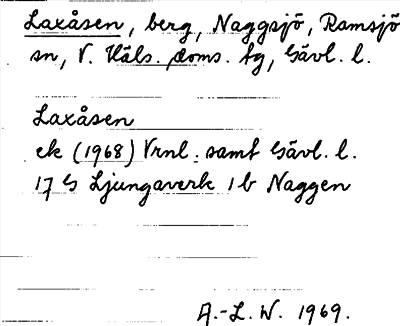 Laxåsen, berg, Naggsjö, Ramsjö
sn, V. Häls. doms. tg, Gävl. l.
Laxåsen
ek (1968) Vrnl. samt Gävl. l.
17 G Ljungaverk 1b Naggen
A.-L. W. 1969.